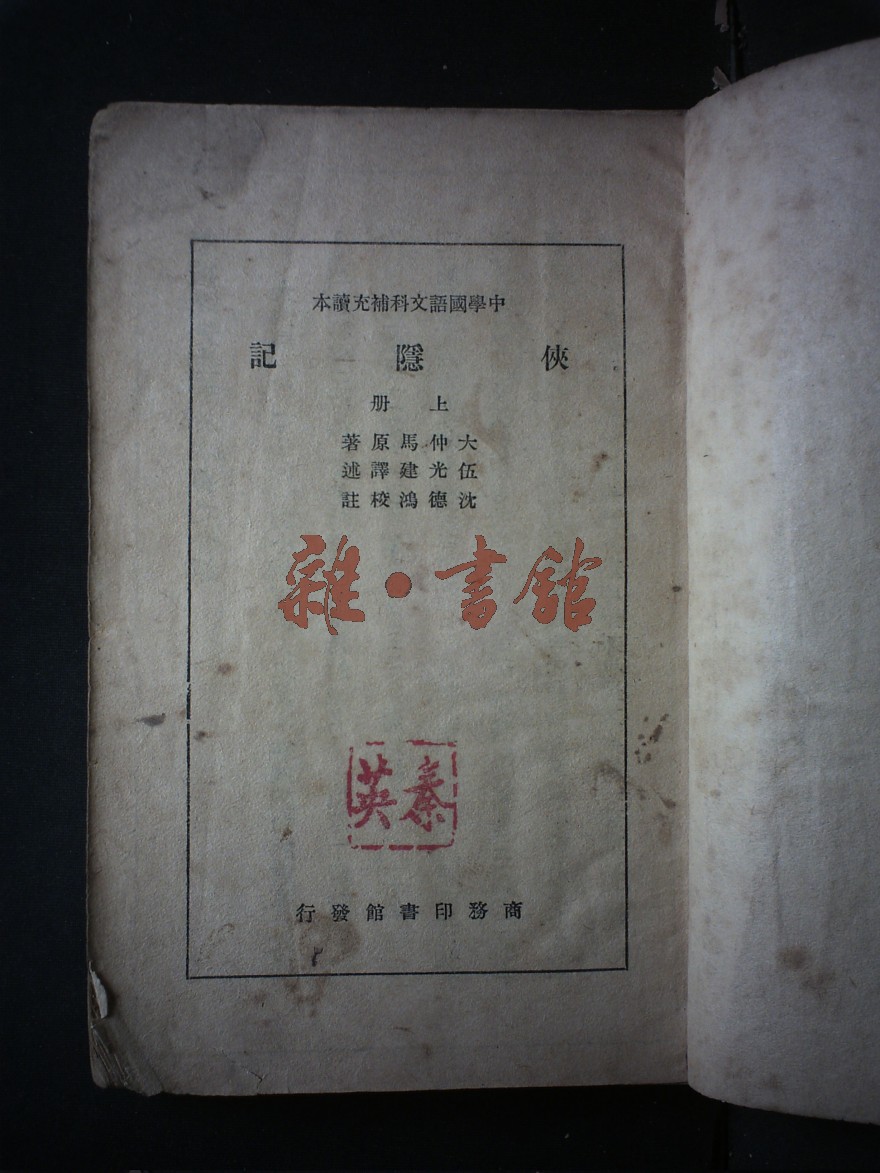 中學國語文科補充讀本
俠隱記
上册
大仲馬原著
伍光建譯述
沈德鴻校註
雜·書館
秦英
商務印書館發行